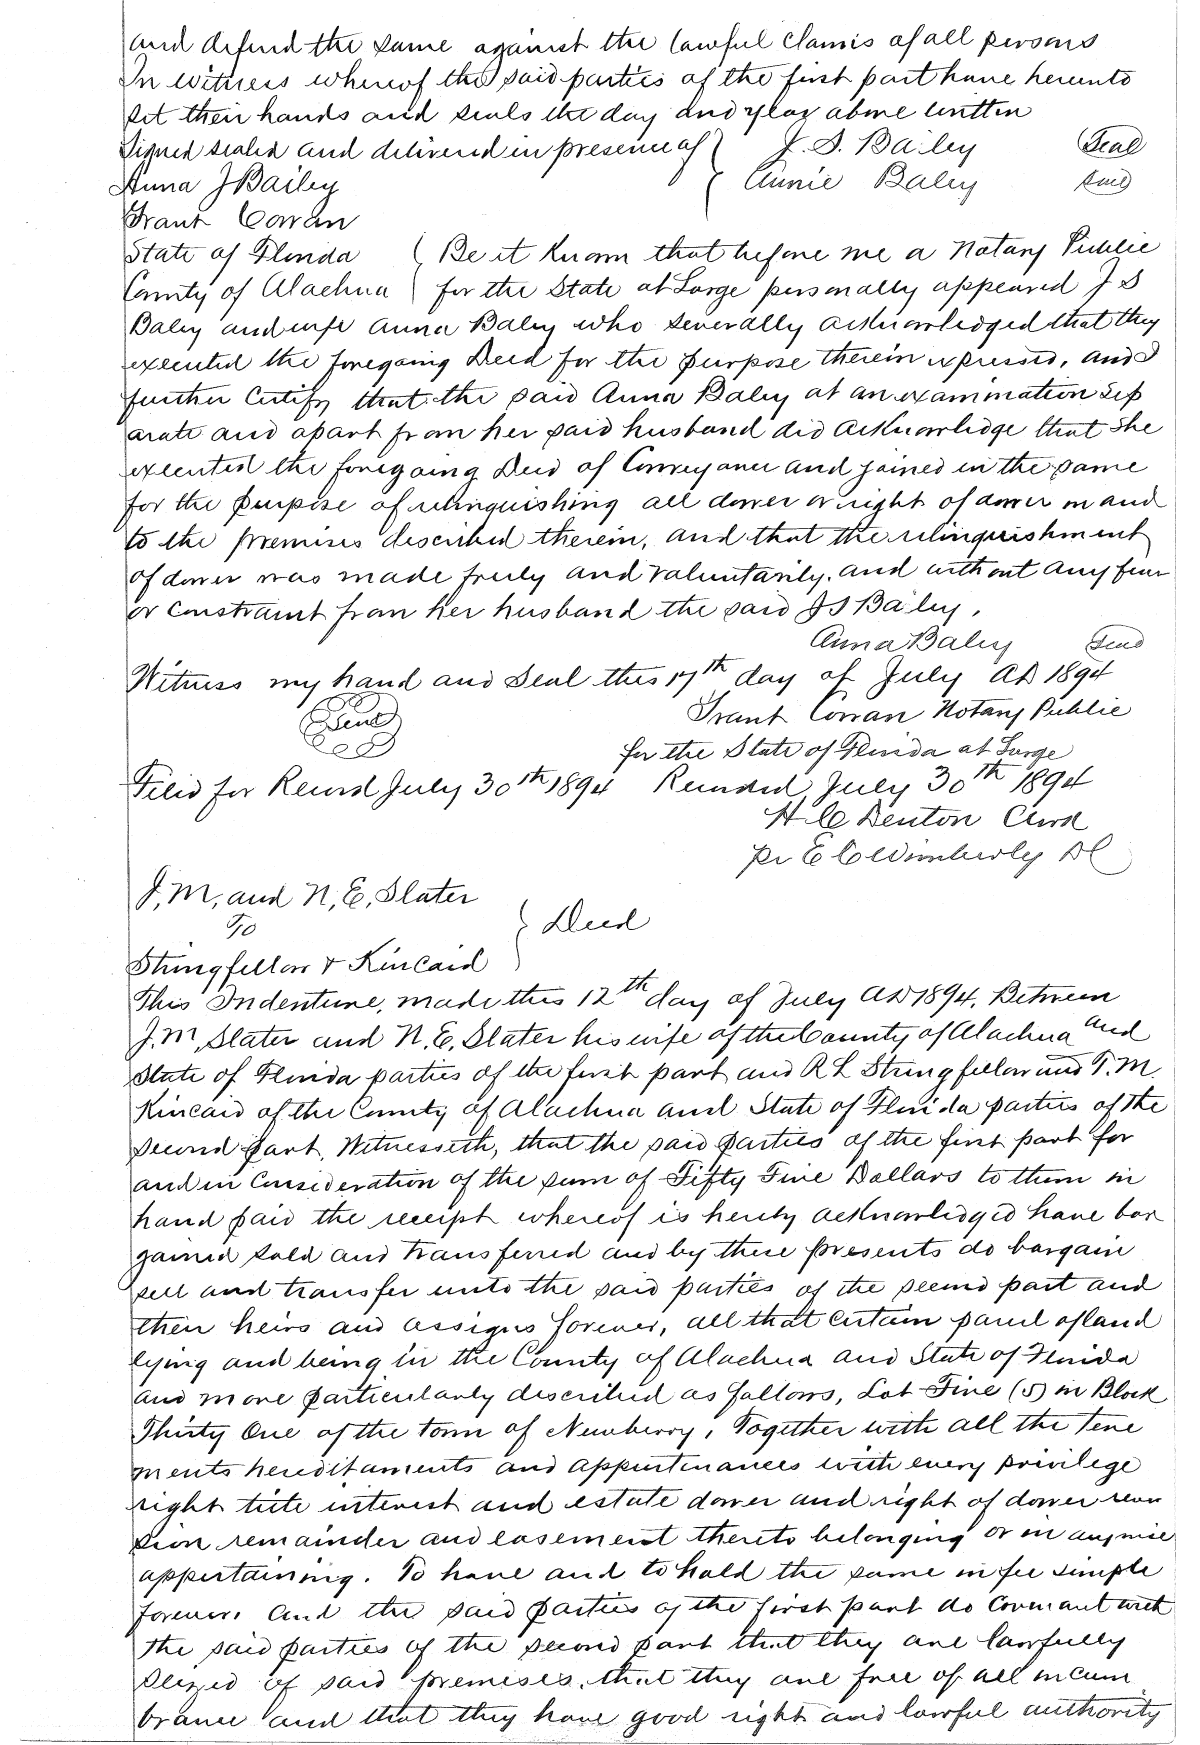 and defend the same against the lawful claims of all persons
In witness whereof the said parties of the first part have hereunto
set their hands and seals the day and year above written
Signed sealed and delivered in presence of J. S. Bailey Seal
Anna J Bailey Annie Baley Seal
Grant Corran
State of Florida Be it Known that before me a Notary Public
County of Alachua for the State at Large personally appeared J S
Baley and wife Anna Baley who severally acknowledged that they
executed the foregoing Deed for the purpose therein expressed, and I
further Certify that the said Anna Baley at an examination sep
arate and apart from her said husband did acknowledge that she
executed the foregoing Deed of Conveyance and joined in the same
for the purpose of relinquishing all dower or right of dower in and
to the premises described therein, and that the relinquishment
of dower was made freely and voluntarily, and without any fear
or constraint from her husband the said J S Baley,
Anna Baley Seal
Witness my hand and Seal this 17th day of July AD 1894
Seal Grant Corran Notary Public
for the State of Florida at Large
Filed for Record July 30th 1894 Recorded July 30th 1894
H C Denton Clerk
pr E C Wimberly DC
J, M, and N, E, Slater
To Deed
Stringfellow & Kincaid
This Indenture, made this 12th day of July AD 1894, Between
J. M, Slater and N. E, Slater his wife of the County of Alachua and
State of Florida parties of the first part and R L Stringfellow and T. M
Kincaid of the County of Alachua and State of Florida parties of the
second part, Witnesseth, that the said parties of the first part for
and in Consideration of the sum of Fifty Five Dollars to them in
hand paid the receipt whereof is hereby acknowledged have bar
gained sold and transferred and by these presents do bargain
sell and transfer unto the said parties of the second part and
their heirs and assigns forever, all that certain parcel of land
lying and being in the County of Alachua and State of Florida
and more particularly described as follows, Lot Five (5) in Block
Thirty One of the town of Newberry, Together with all the tene
ments hereditaments and appurtenances with every privilege
right title interest and estate dower and right of dower rever
sion remainder and easement thereto belonging or in anywise
appertaining. To have and to hold the same in fee simple
forever. And the said parties of the first part do covenant with
the said parties of the second part that they are lawfully
seized of said premises, that they are free of all incum
brance and that they have good right and lawful authority